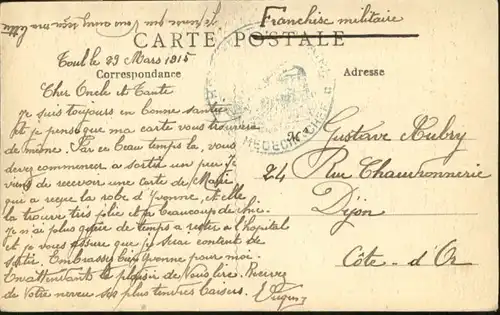 Je pense que Vous aurez reçu ma lettre
Franchise militaire
CARTE POSTALE
Toul le 29 Mars 1915
Correspondance
Adresse
Cher Oncle et Tante
Je suis toujours en bonne santée
et je pense que ma carte vous trouvera
de même. Par ce beau temps la, vous
devez commencer a sortir un peu. Je
viens de recevoir une carte de Marie
qui a reçue la robe d'Yvonne, et elle
la trouve très jolie et a beaucoup de
Je n'ai plus guère de temps a rester a l'hopital
et je vous assure que je serai content de
sortir. Embrassez bien Yvonne pour moi.
En attendant le plaisir de Vous lire. Recevez
de Votre neveu ses plus tendres baisers.
MEDECIN CHEF
Mr Gustave Aubry
24 Rue Chaudronnerie
Dijon
Côte-d'Or